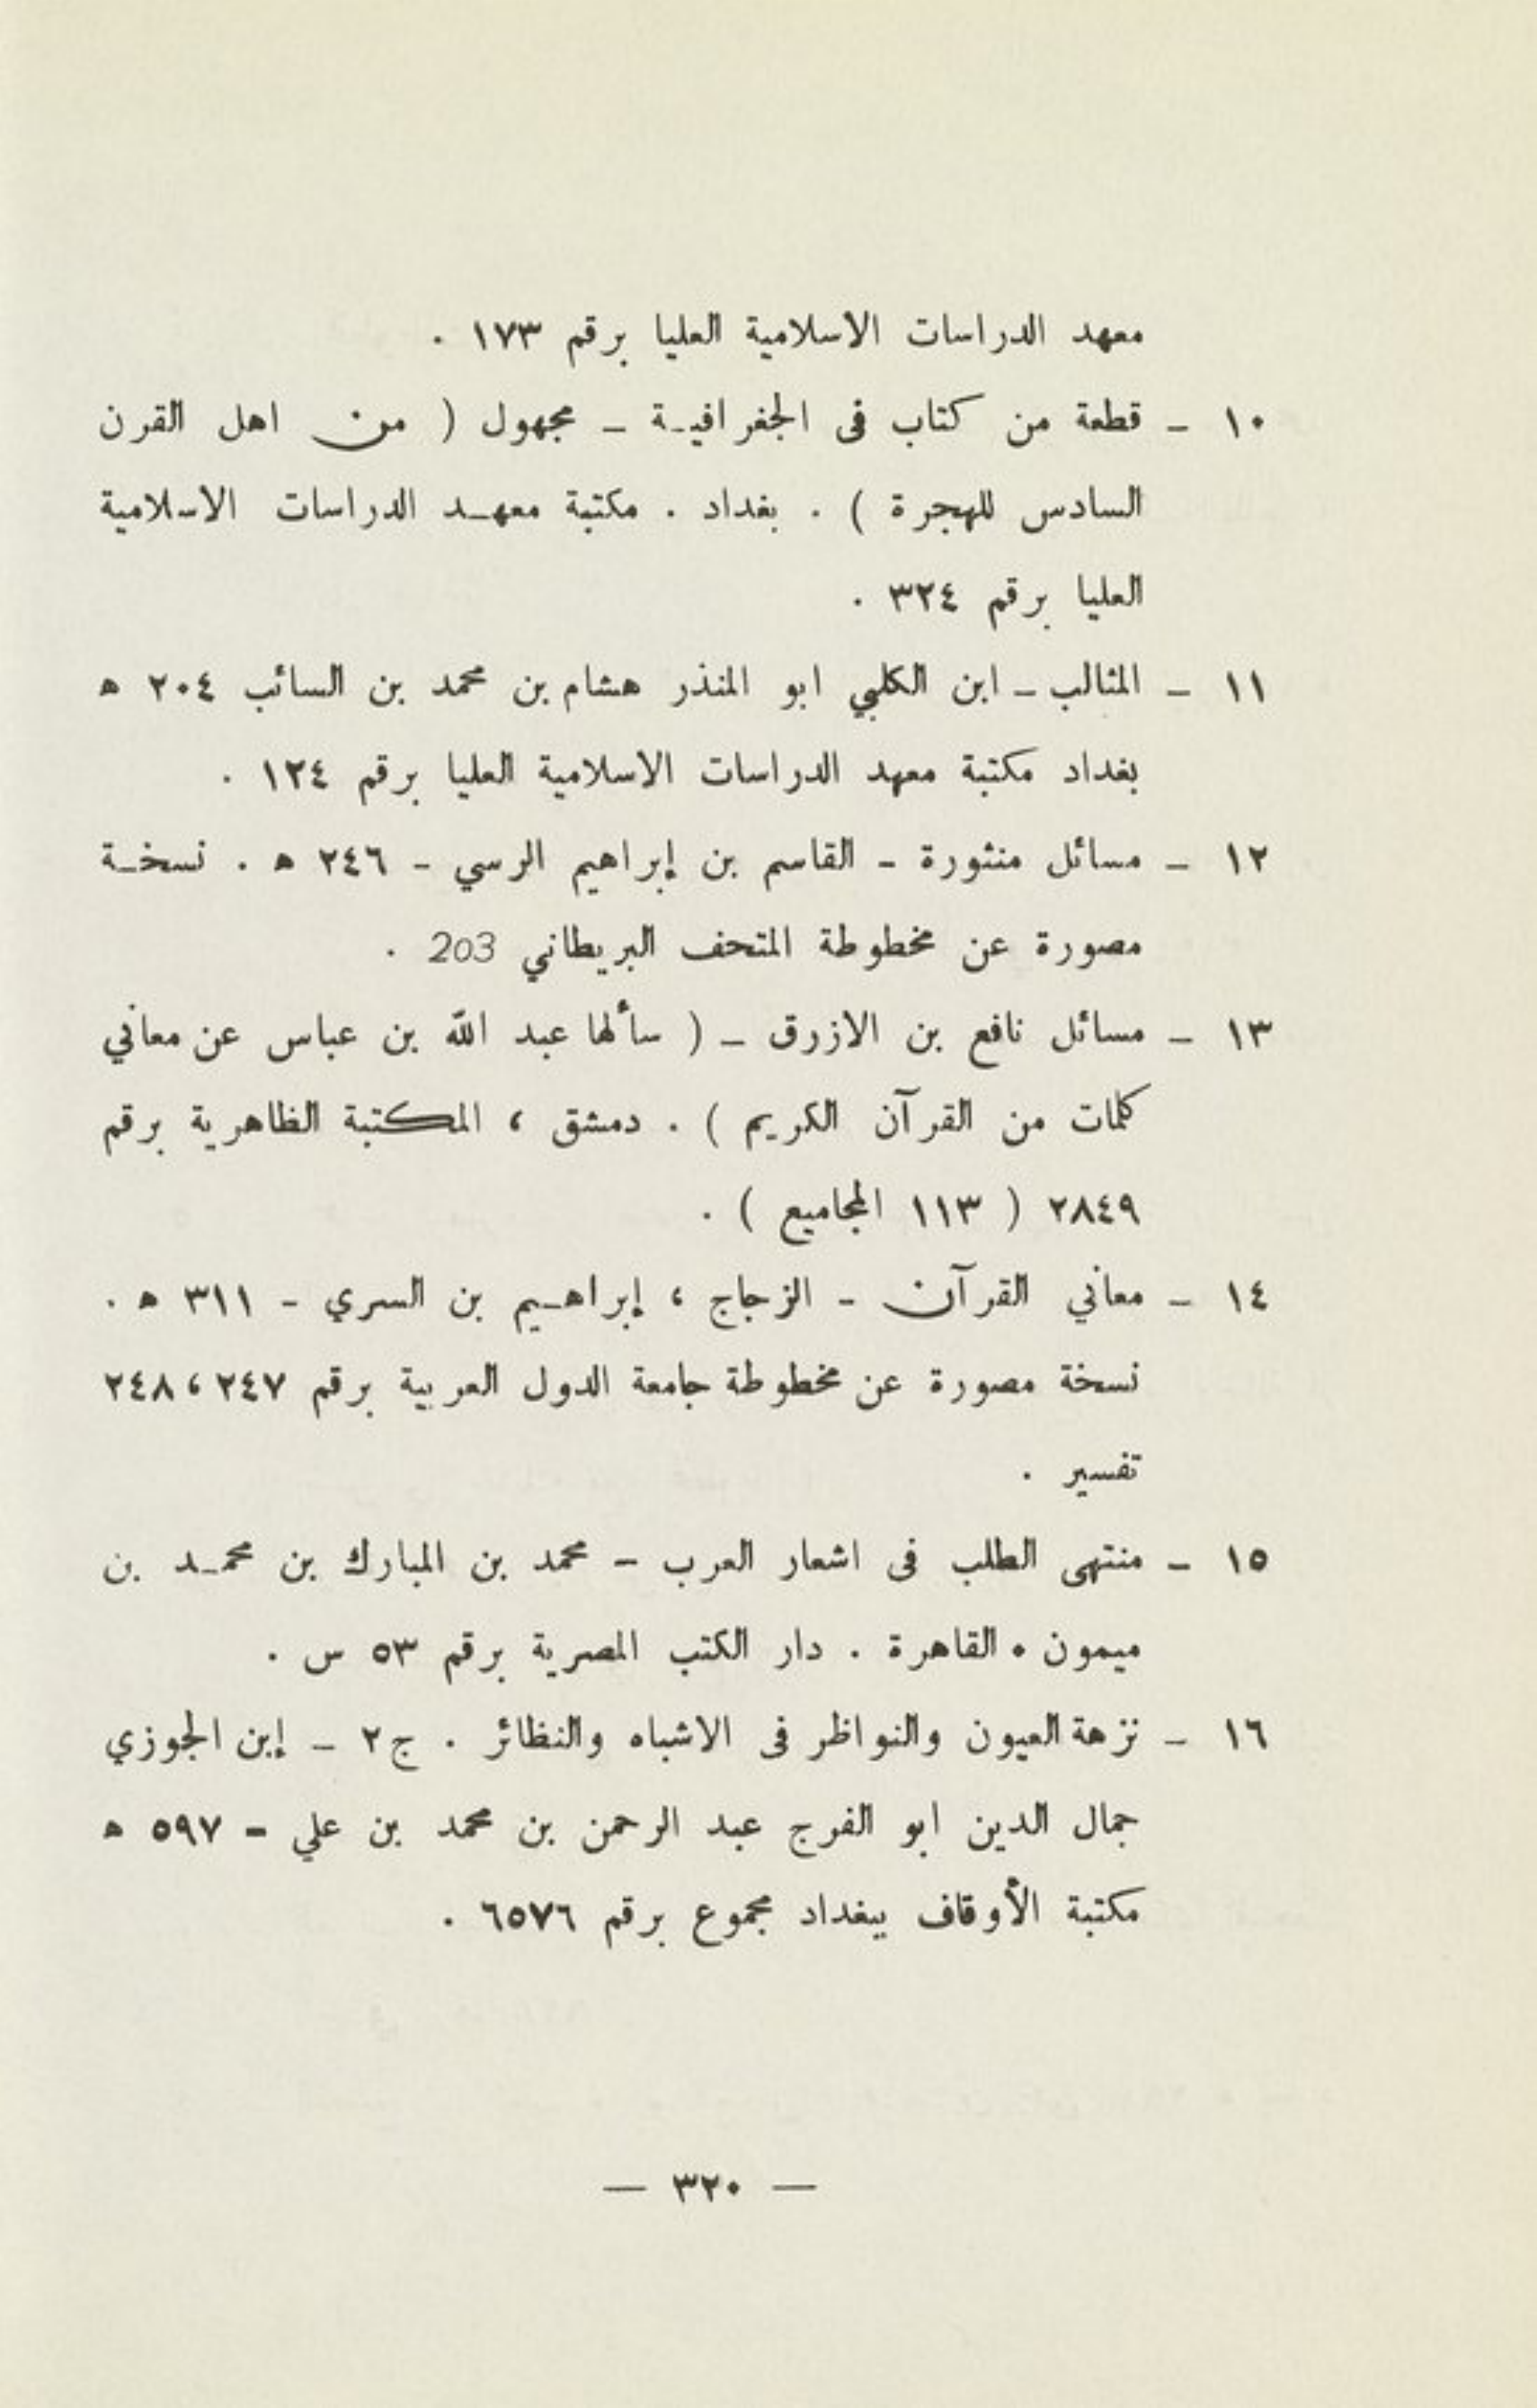 معهد الدراسات الاسلامية العليا برقم ١٧٣ .
١٠ – قطعة من كتاب فى الجغرافيـة – مجهول ( من اهل القرن
السادس للهجرة ) . بغداد . مكتبة معهـد الدراسات الاسلامية
العليا برقم ٣٢٤ .
١١ – المثالب – ابن الكلبي ابو المنذر هشام بن محمد بن السائب ٢٠٤ ه
بغداد مكتبة معهد الدراسات الاسلامية العليا برقم ١٢٤ .
١٢ – مسائل منثورة – القاسم بن إبراهيم الرسي – ٢٤٦ ه . نسخـة
مصورة عن مخطوطة المتحف البريطاني 203 .
١٣ – مسائل نافع بن الازرق – ( سألها عبد الله بن عباس عن معاني
كلمات من القرآن الكريم ) . دمشق ، المكتبة الظاهرية برقم
٢٨٤٩ ( ١١٣ المجاميع ) .
١٤ – معاني القرآن – الزجاج ، إبراهـيم بن السري – ٣١١ ه .
نسخة مصورة عن مخطوطة جامعة الدول العربية برقم ٢٤٧ ، ٢٤٨
تفسير .
١٥ – منتهى الطلب فى اشعار العرب – محمد بن المبارك بن محمـد بن
ميمون . القاهرة . دار الكتب المصرية برقم ٥٣ س .
١٦ – نزهة العيون والنواظر فى الاشباه والنظائر . ج ٢ – إبن الجوزي
جمال الدين ابو الفرج عبد الرحمن بن محمد بن علي – ٥٩٧ ه
مكتبة الأوقاف ببغداد مجموع برقم ٦٥٧٦ .
— ٣٢٠ —